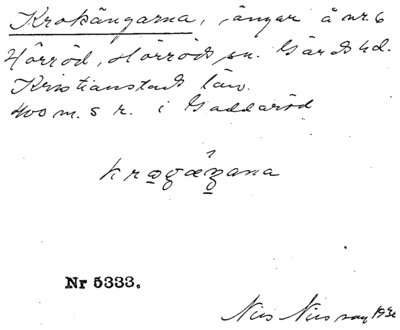 Krokängarna, ängar å nr 6
Hörröd, Hörröds sn. Gärds hd.
Kristianstads län.
400 m. s k. i Gaddaröd
kragæŋana
Nr 5333.
Nils Nilsson 1930